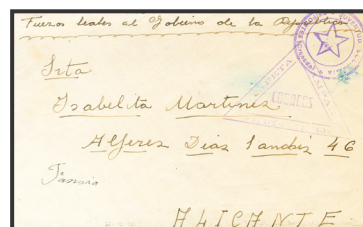 Fuerzas leales al Gobierno de la República
Srta
Isabelita Martinez
Alferez Diaz Sanchez 46
ALICANTE
CORREOS